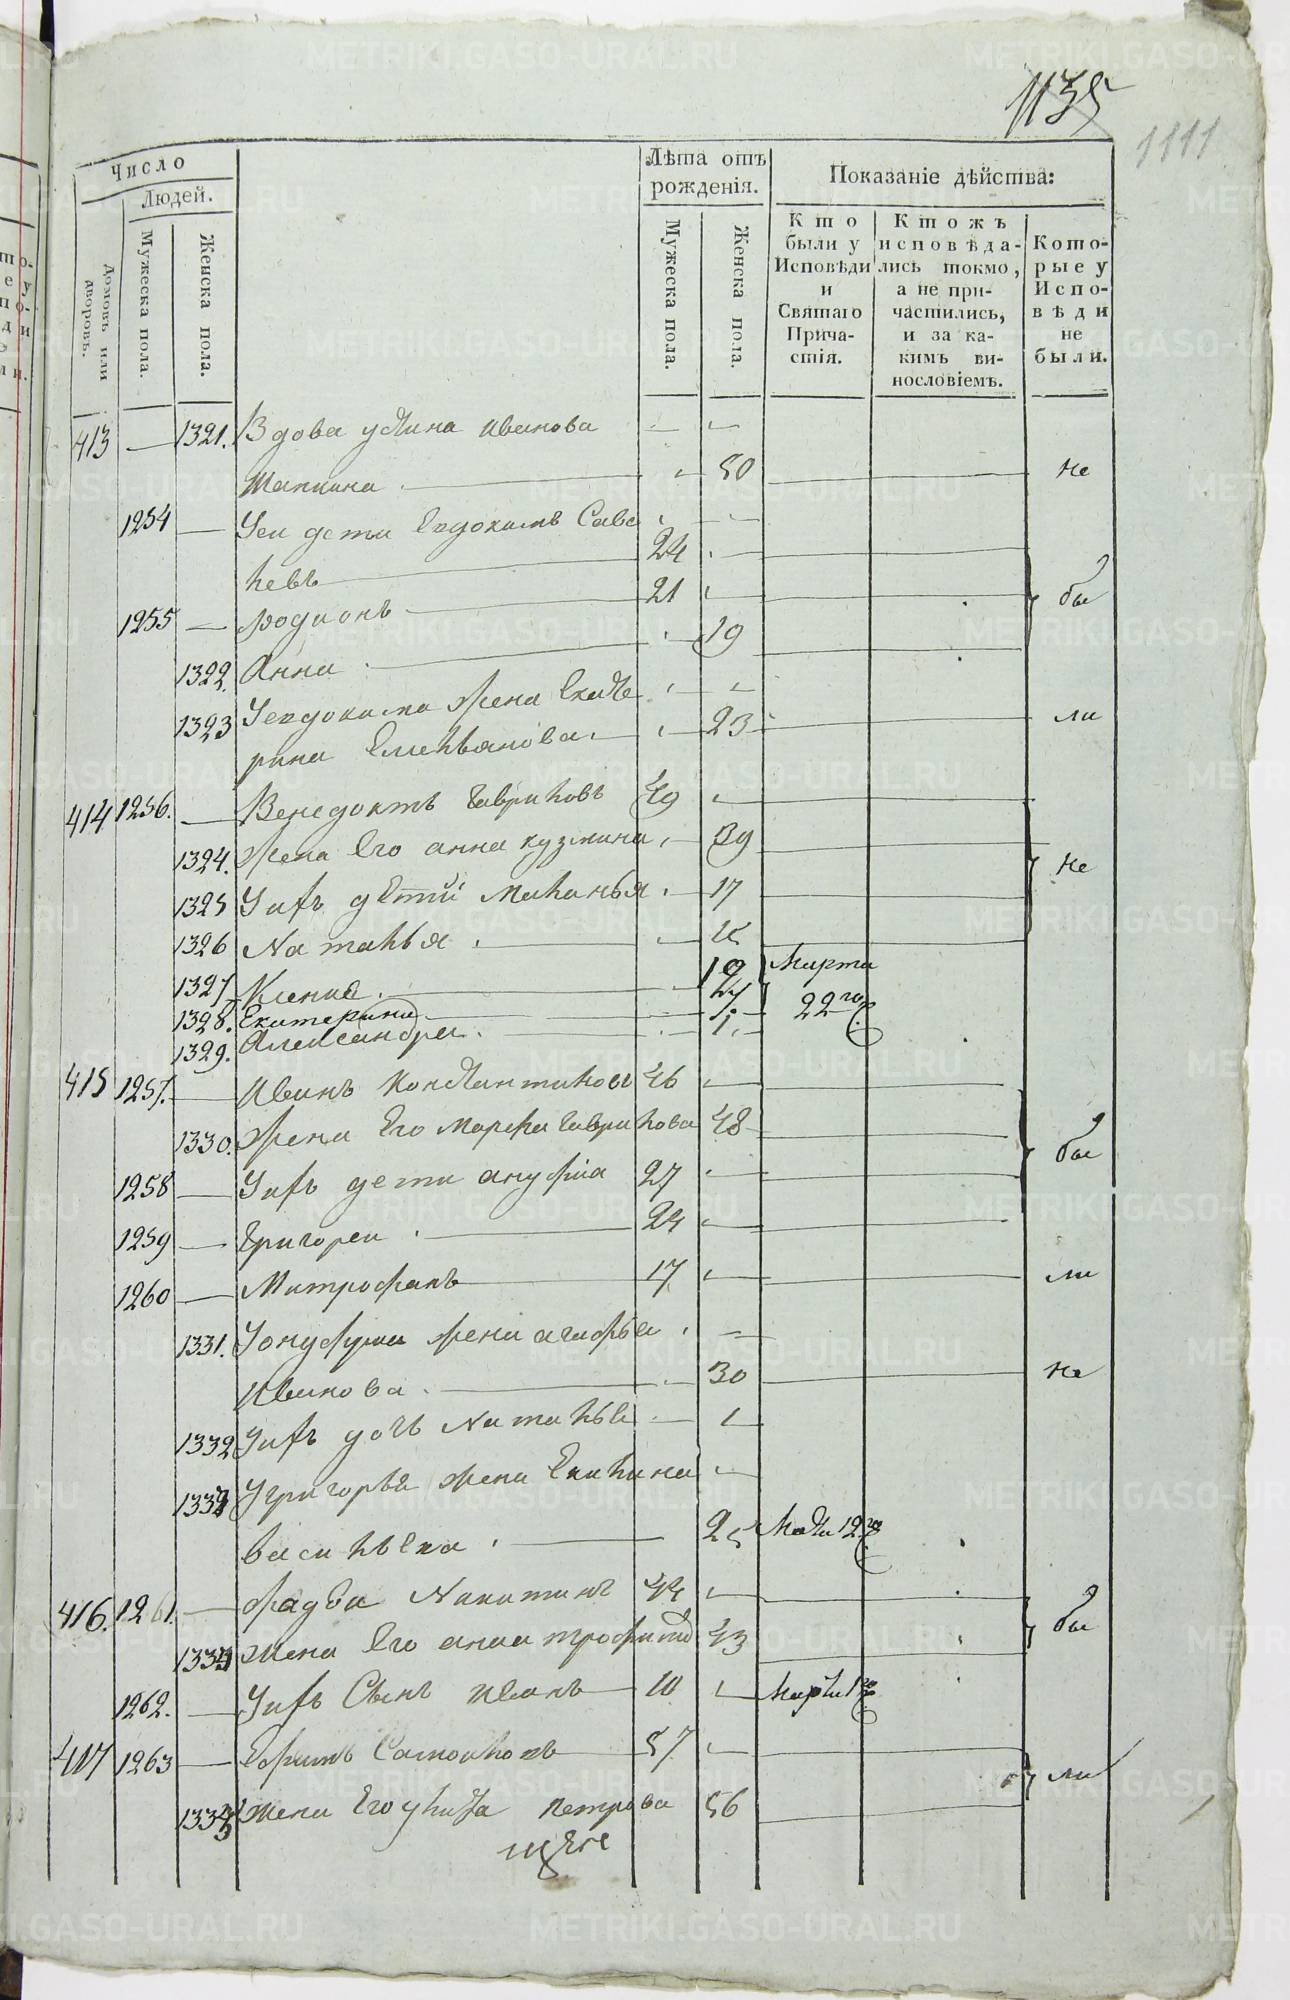 1135
1111
Число
Людей.
Домовъ или дворовъ.
Мужеска пола.
Женска пола.
Лѣта отъ рожденія.
Мужеска пола.
Женска пола.
Показаніе дѣйства:
Кто были у Исповѣди и Святаго Причастія.
Ктожъ исповѣдались токмо, а не причастились, и за какимъ винословіемъ.
Которые у Исповѣди не были.
413 — 1321. Вдова устина иванова
50 не
1254 — Уеи дети Евдокимъ Саве
левъ 24
1255 — родионъ 21 бы
1322. Анна 19
1323 Уевдокима жена Екате
рина Емельянова 23 ли
414 1256. — Венедиктъ Гавриловъ 49
1324. Жена Его анна кузмина 39
1325 Уихъ дѣти Маланья 17 не
1326 Наталья 15
1327 Ксения 12 Марта
1328. Екатерина 22го
1329. Александра 1
415 1257. — Иванъ Константиновъ 46
1330. Жена Его Марѳа Гаврилова 48
1258 — Уихъ дети ануфриа 27 бы
1259 — Григореи 24
1260 — Митрофанъ 17 ли
1331. Уонуфрии жена агафья
Иванова 30 не
1332 Уихъ дочь Наталья 1
1333 Угригорья жена Екилина
васильева 25 12го
416. 1261. — Никитинъ 44
1334 Жена Его анна 43 бы
1262. — Уихъ Сынъ Иванъ 10 Марта
417 1263 — Ефимъ Самоиловъ 57 ли
1335 Жена Его улита петрова 56